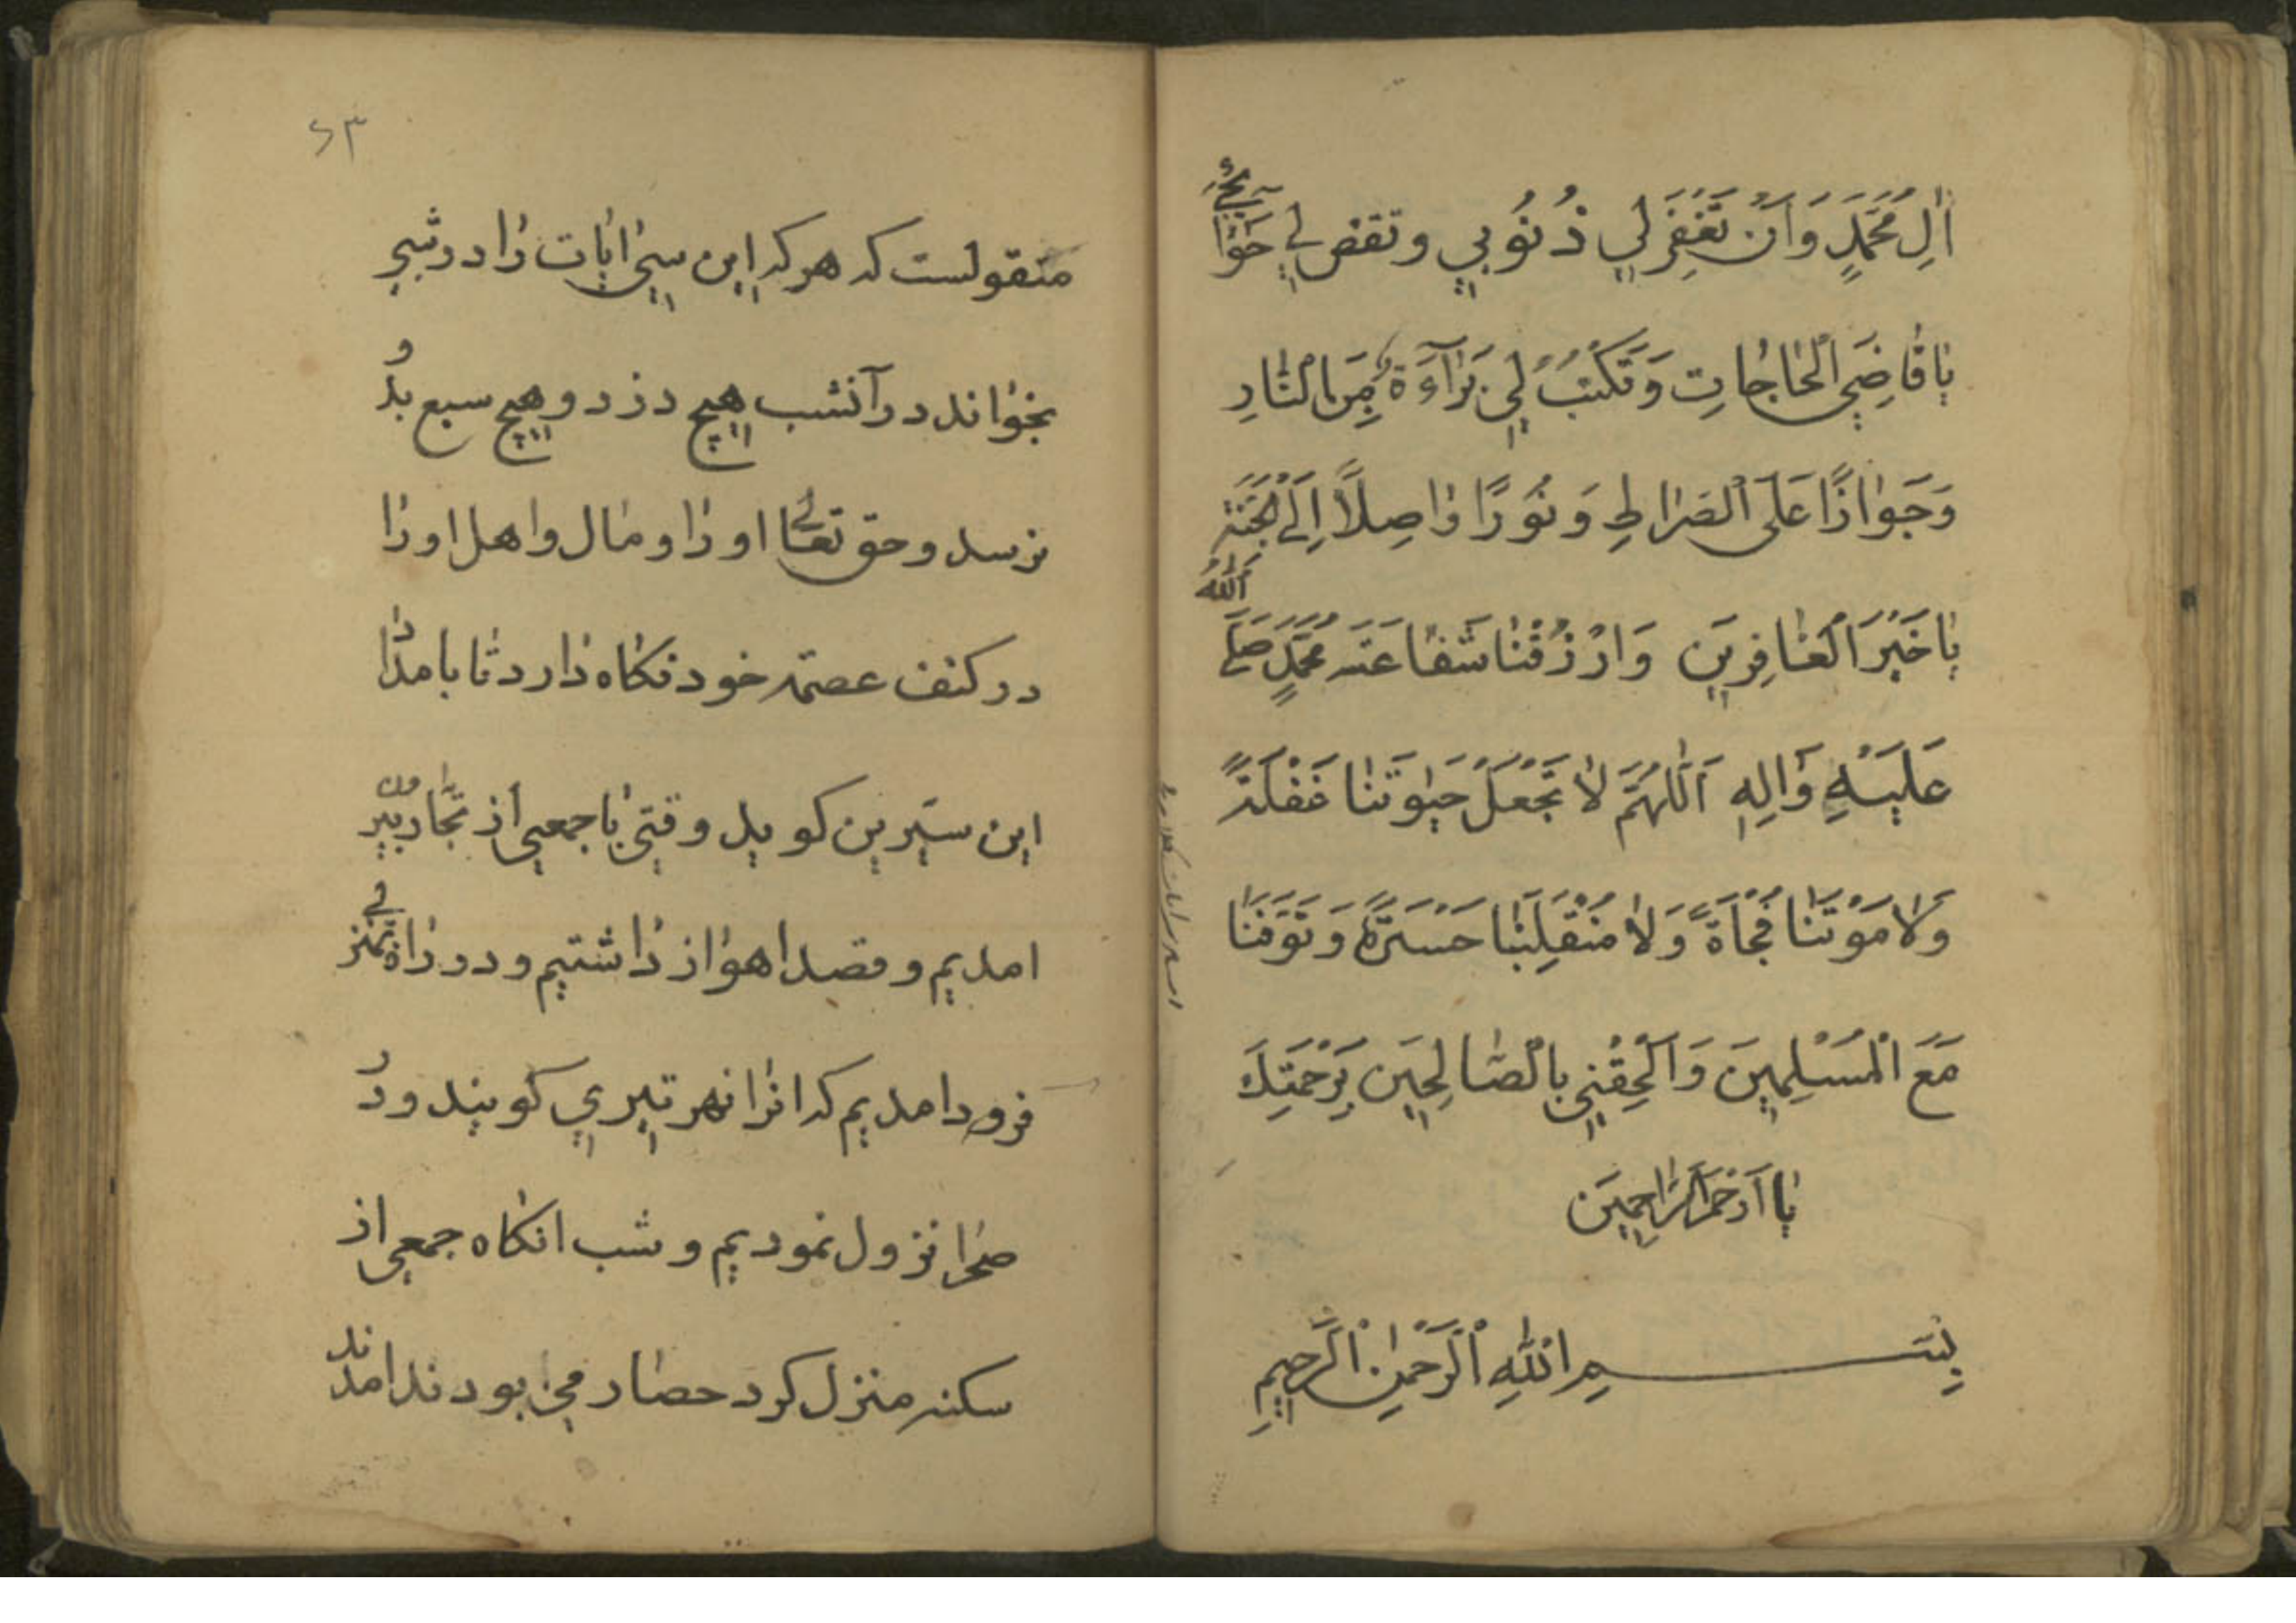 اٰلِ مُحَمَّدٍ وَاَنْ تَغْفِرَ لِي ذُنُوبِي وتقض لِي حَوٰائِجِي
يٰا قٰاضِيَ الْحٰاجٰاتِ وَتَكْتُبُ لِي بَرٰآءَةً مِنَ الْنّٰارِ
وَجَوٰازًا عَلَى الْصِرٰاطِ وَنُورًا وٰاصِلاً اِلَى الْجَنَّةِ
يٰا خَيْرَ الْغٰافِرِينَ وَارْزُقْنٰا شَفٰاعَةَ مُحَمَّدٍ صَلَّى اَللّٰهُ
عَلَيْهِ وَاٰلِهِ اَللّٰهُمَّ لاٰ تَجْعَلْ حَيٰوتَنٰا غَفْلَةً
وَلاٰ مَوْتَنٰا فُجْاَةً وَلاٰ مُنْقَلِبَنٰا حَسْرَةً وَتَوَفَّنٰا
مَعَ الْمُسْلِمِينَ وَاَلْحِقْنِي بِالْصّٰالِحِينَ بِرَحْمَتِكَ
يٰا اَرْحَمَ الرّٰاحِمِينَ
بِسْمِ اللّٰهِ اَلْرَّحْمٰنِ اَلْرَّحِيمِ
٤٣
منقولست كه هر كه اين سى اٰيٰات رٰا در شبى
بخوٰاند در آنشب هيچ دزد و هيچ سبع بدو
نرسد و حق تعالى او رٰا و مٰال و اهل او رٰا
در كنف عصمة خود نكٰاه دٰارد تٰا بامدٰاد
ابن سيرين كويد وقتى بٰا جمعى از تجّٰار بيرون
امديم و قصد اهوٰاز دٰاشتيم و در رٰاه بمنزلى
فرود امديم كه انرٰا نهر تيرى كويند و در
صحرٰا نزول نموديم و شب انكٰاه جمعى از
سكنه منزل كه در حصٰار مى بودند امدند